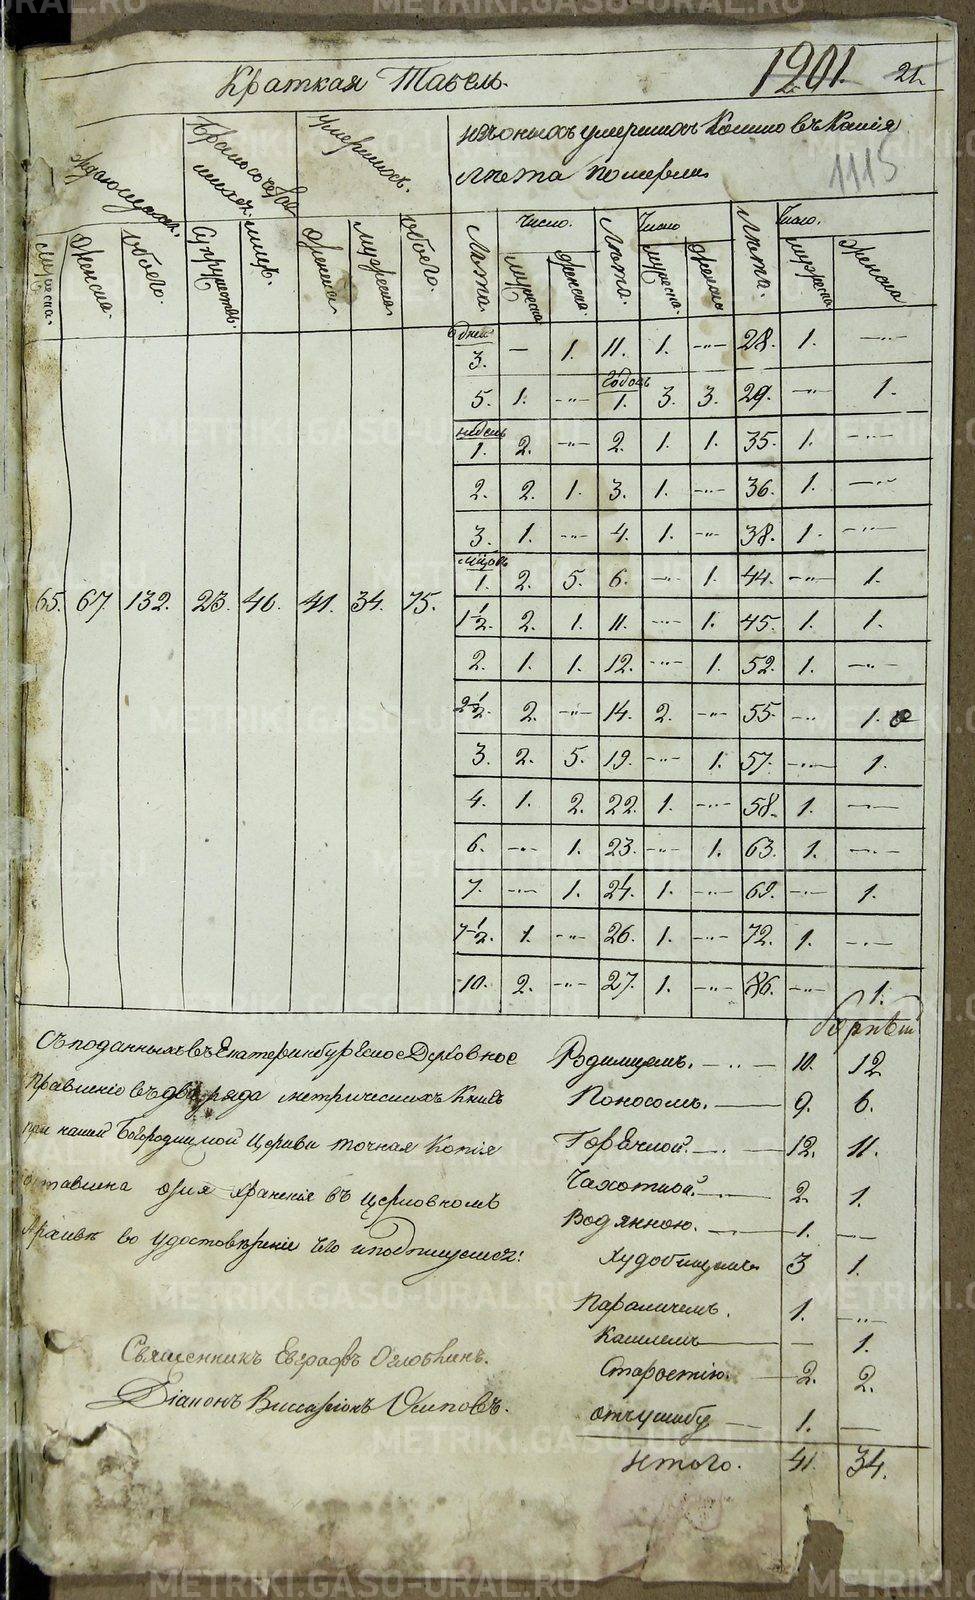 Краткая Табель.
1201. 21.
1115
Рождающихся.
Бракосочетавшихся.
Умершихъ.
Изъ оныхъ умершихъ Колико въ Какія
лѣта померли
Мужеска. Женска. Обоего. Супружествъ. лицъ. Женска. мужеска. Обоего.
Лѣта. Число. Лѣта. Число Лѣта. Число.
мужеска Женска. мужеска. Женска мужеска Женска
дней
3. — 1. 11. 1. —„— 28. 1. —„—
5. 1. —„— Годовъ 1. 3. 3. 29. —„— 1.
недель
1. 2. —„— 2. 1. 1. 35. 1. —„—
2. 2. 1. 3. 1. —„— 36. 1. —„—
3. 1. —„— 4. 1. —„— 38. 1. —„—
1. 2. 5. 6. —„— 1. 44. —„— 1.
65. 67 132. 23. 46. 41. 34. 75.
1½. 2. 1. 11. —„— 1. 45. 1. 1.
2. 1. 1. 12. —„— 1. 52. 1. —„—
2½. 2. —„— 14. 2. —„— 55. —„— 1.
3. 2. 5. 19. —„— 1. 57. —„— 1.
4. 1. 2. 22. 1. —„— 58. 1. —„—
6. —„— 1. 23. —„— 1. 63. 1. —„—
7. —„— 1. 24. 1. —„— 69. —„— 1.
7½. 1. —„— 26. 1. —„— 72. 1. —„—
10. 2. —„— 27. 1. —„— 86. —„— 1.
Съ поданныхъ въ Екатеринбургское Духовное
Правленіе въ два ряда метрическихъ Книгъ
при нашей Богородицкой Церкви точная Копія
оставлена для храненія въ церковномъ
Архивѣ во удостовѣреніе чего и подпишуемся:
Священникъ Евграфъ Оглоблинъ.
Діаконъ Виссаріонъ Осиповъ.
Родимцемъ. —„— 10. 12
Поносомъ. — 9. 6.
Горячкой. — 12. 11.
Чахоткой. — 2. 1.
Водянкою. — 1. —„—
Худобищемъ 3 1.
Параличемъ. 1. —„—
Кашлемъ — — 1.
Старостію. — 2. 2.
отъ ушибу — 1. —
Итого. 41. 34.
METRIKI.GASO-URAL.RU